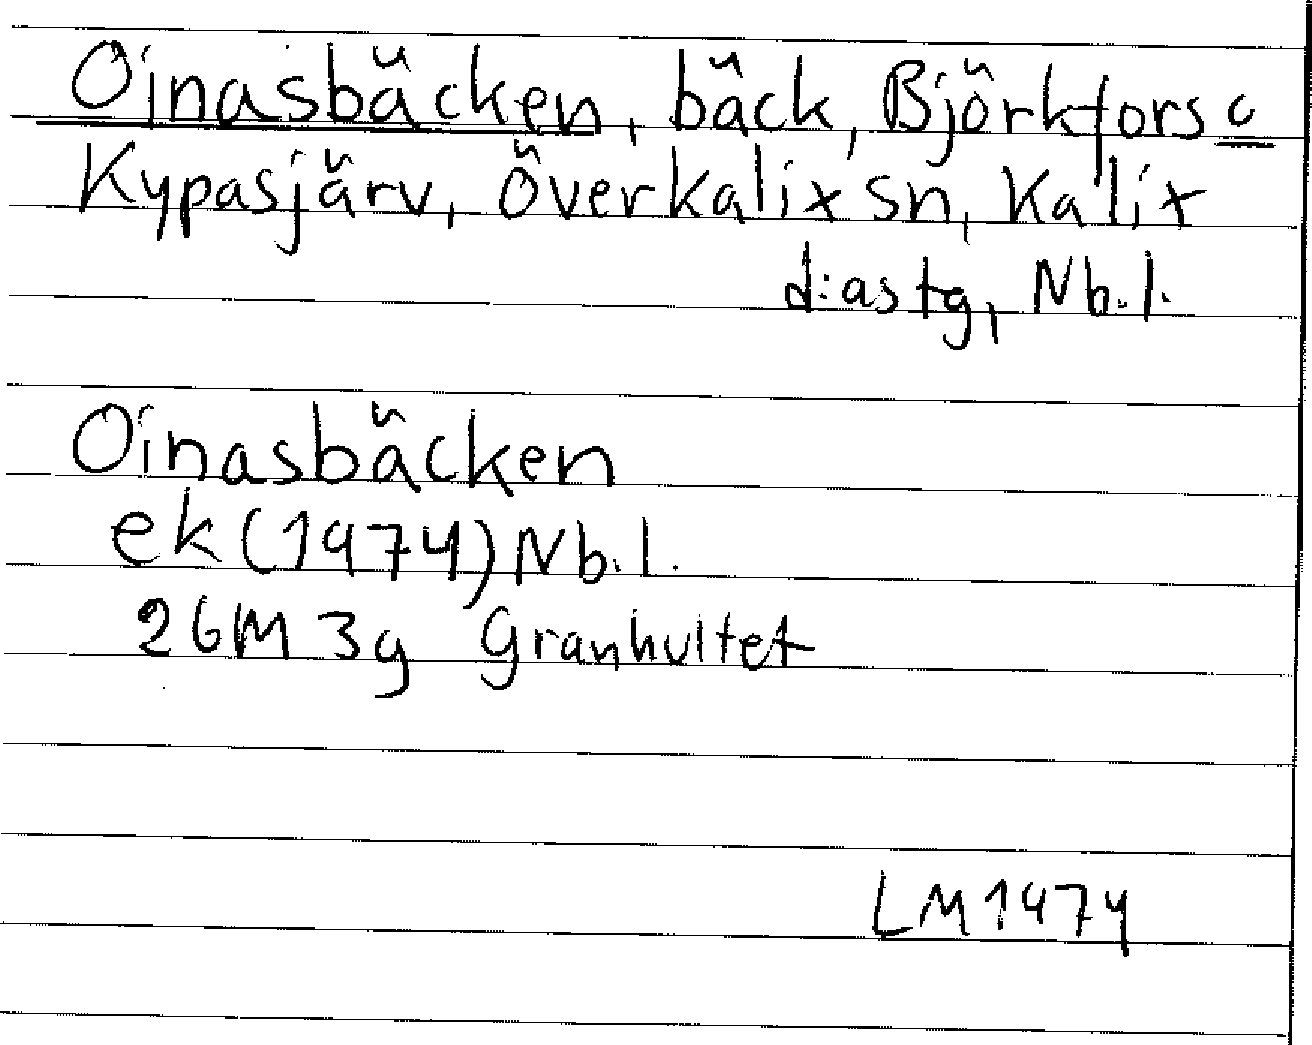 Oinasbäcken, bäck, Björkfors o
Kypasjärv, Överkalix sn, Kalix
d:astg, Nb.l.
Oinasbäcken
ek (1974) Nb.l.
26M 3g Granhultet
LM 1974